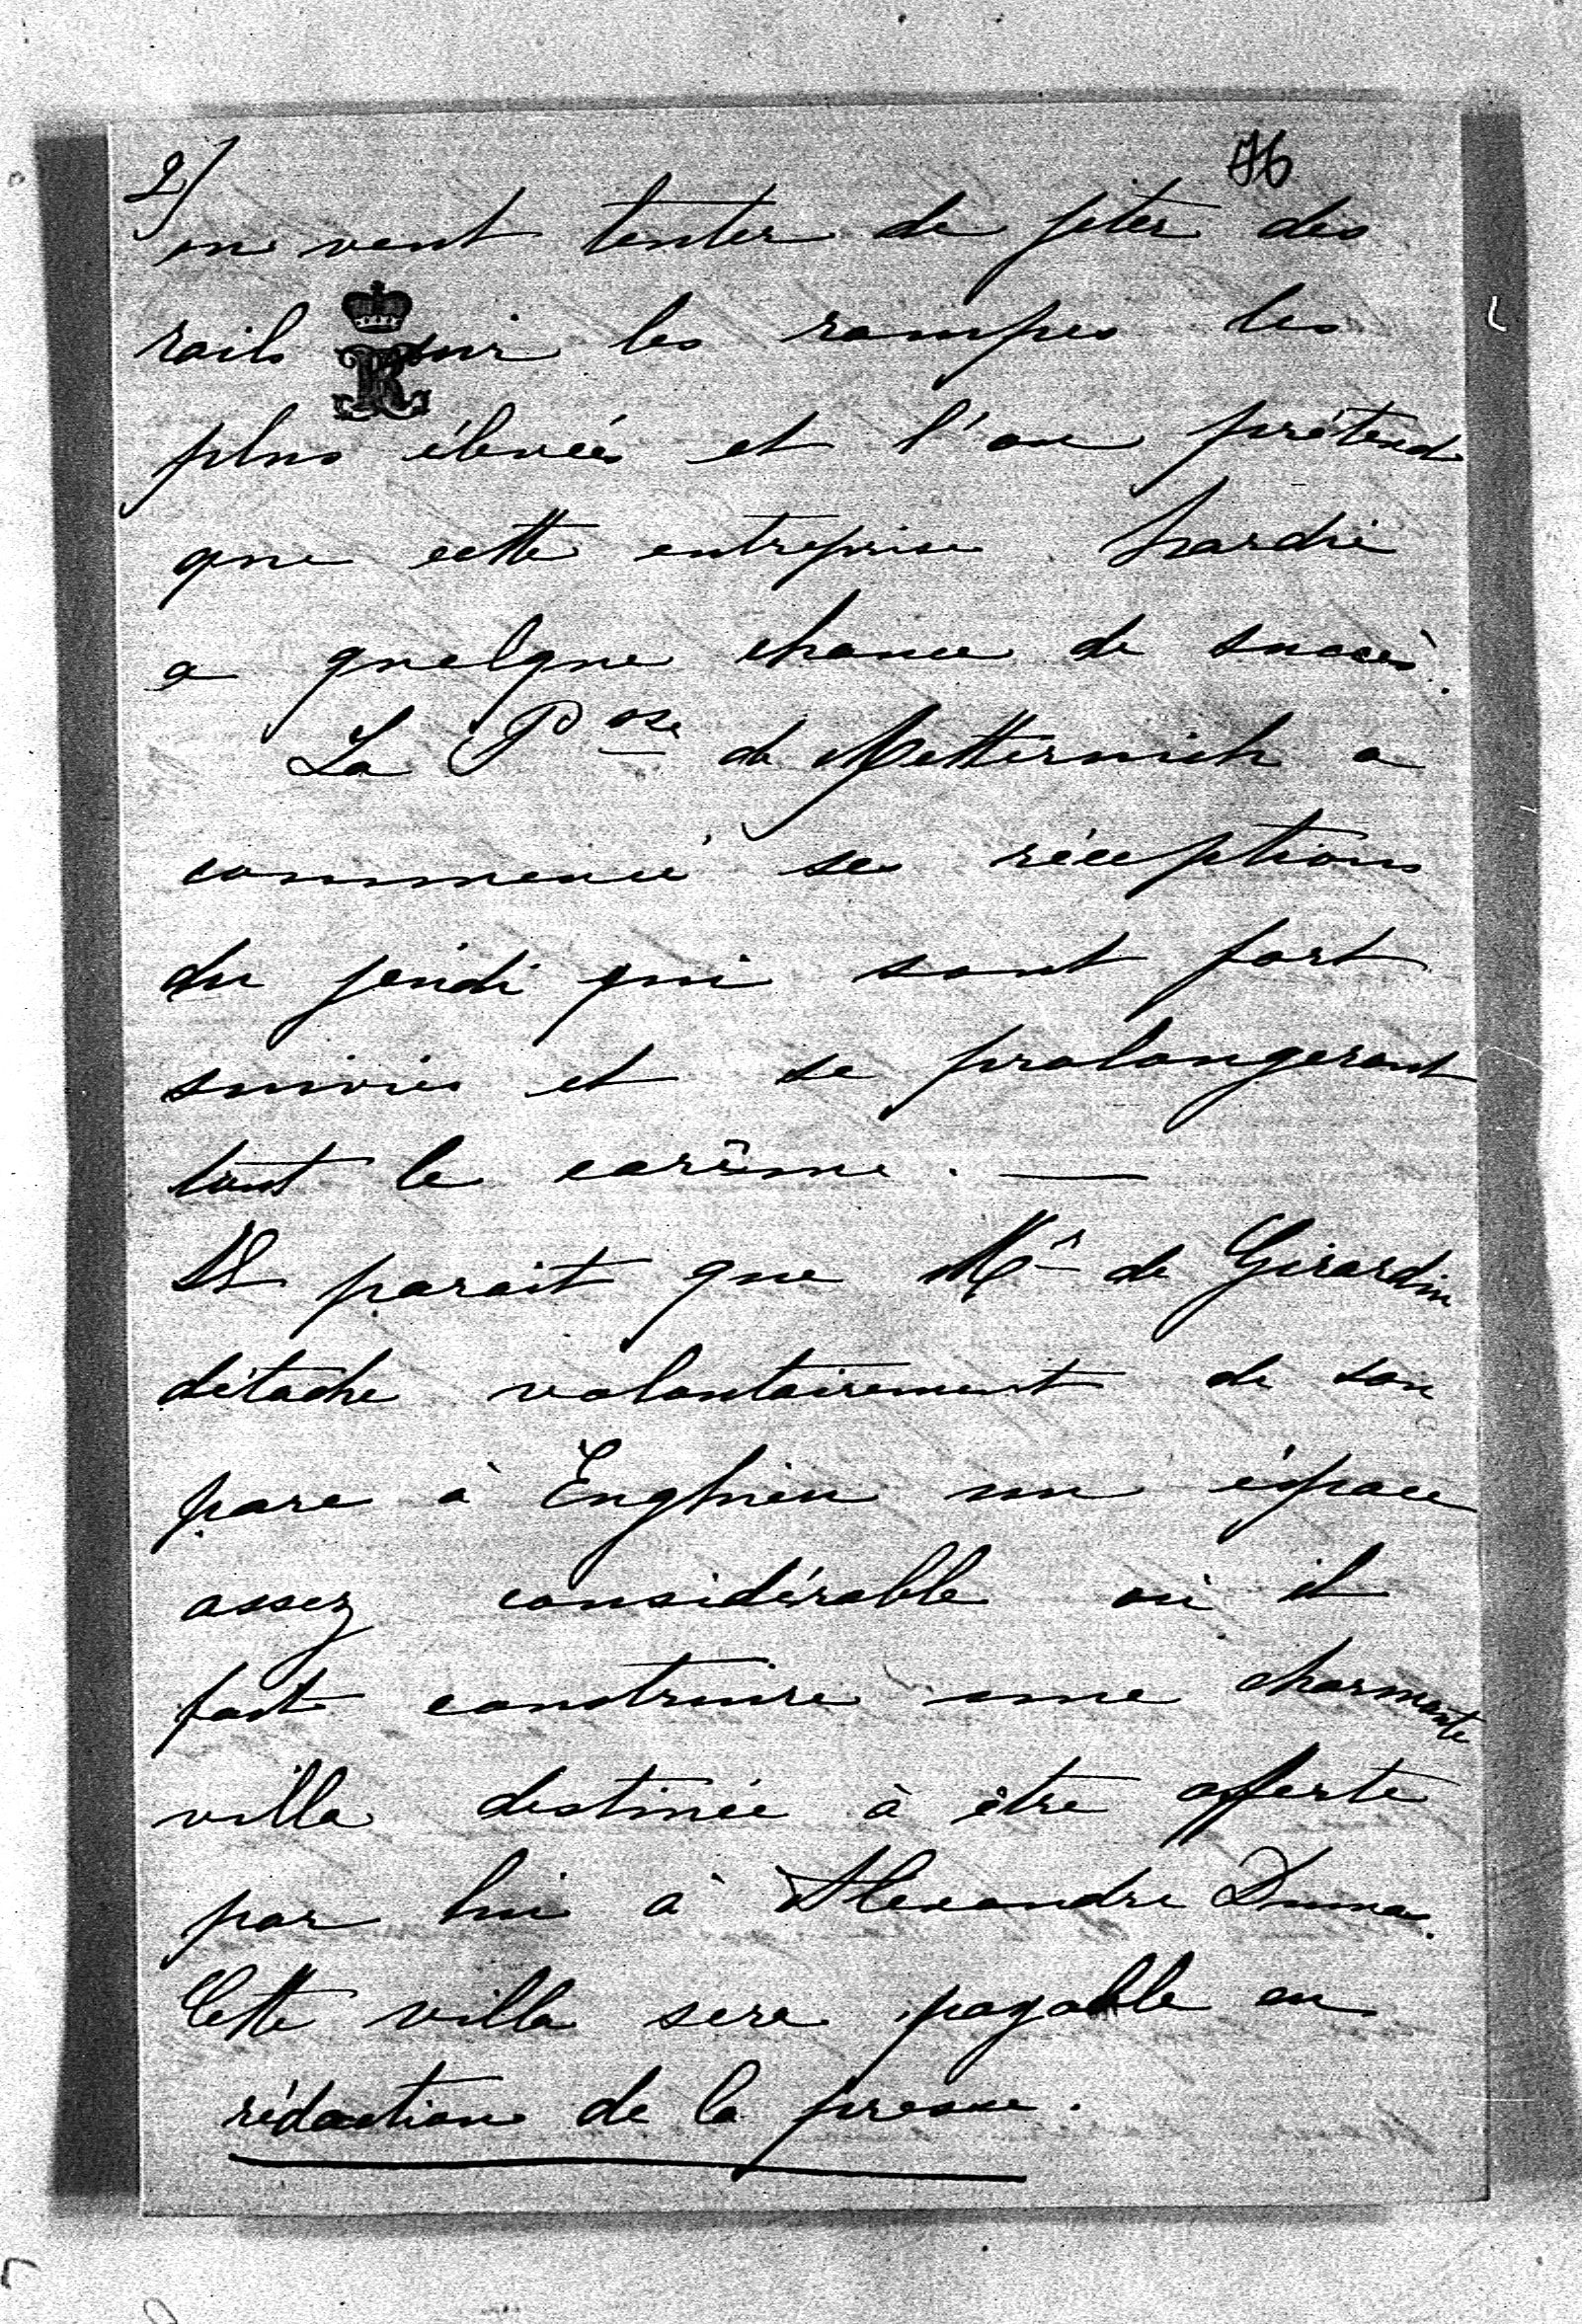 2/
76
on veut tenter de jeter des
rails sur les rampes les
plus élevées et l'on prétend
que cette entreprise hardie
a quelque chance de succès.
La Psse de Metternich a
commencé ses réceptions
du jeudi qui sont fort
suivies et se prolongeront
tout le carême. —
Il parait que Mr de Girardin
détache volontairement de son
parc à Enghien un éspace
assez considérable où il
fait construire une charmante
villa destinée à être offerte
par lui à Alexandre Dumas.
Cette villa sera payable en
rédaction de la presse.